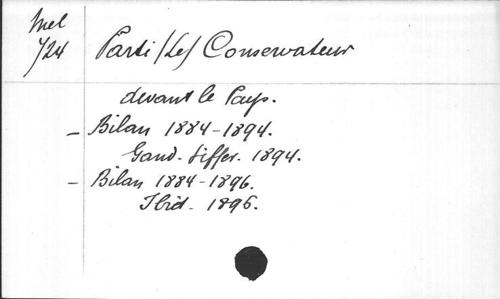 Mel
/24
Parti /Le/ Conservateur
devant le Pays.
- Bilan 1884-1894.
Gand. Siffer. 1894.
- Bilan 1884-1896.
Ibid. 1896.